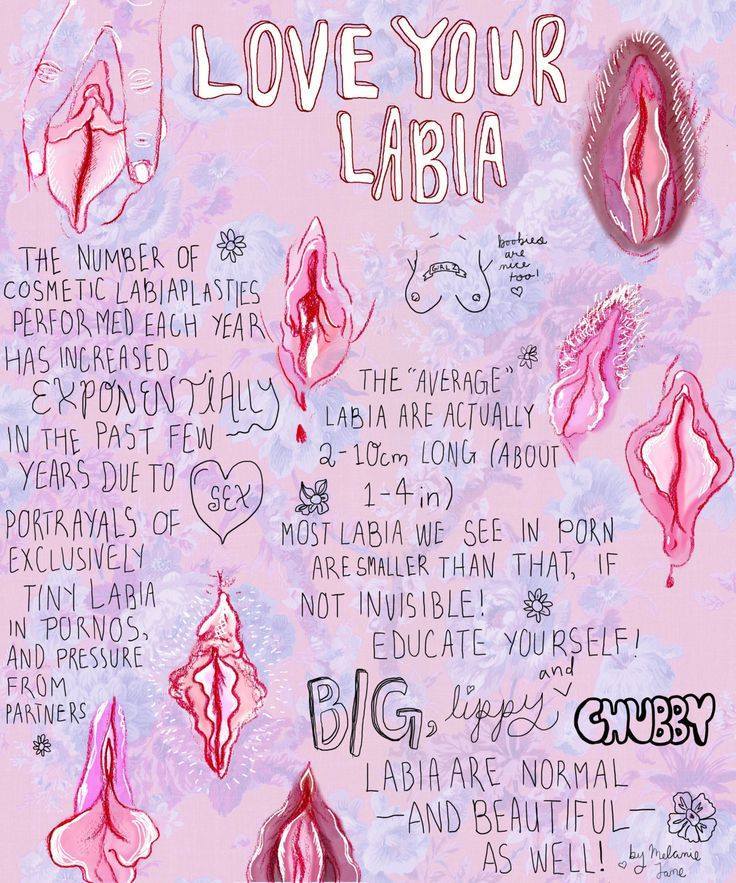 LOVE YOUR
LABIA
THE NUMBER OF
COSMETIC LABIAPLASTIES
PERFORMED EACH YEAR
HAS INCREASED
EXPONENTIALLY
IN THE PAST FEW
YEARS DUE TO
SEX
PORTRAYALS OF
EXCLUSIVELY
TINY LABIA
IN PORNOS,
AND PRESSURE
FROM
PARTNERS
GIRLZ
boobies
are
nice
too!
THE "AVERAGE"
LABIA ARE ACTUALLY
2-10cm LONG (ABOUT
1-4in)
MOST LABIA WE SEE IN PORN
ARE SMALLER THAN THAT, IF
NOT INVISIBLE!
EDUCATE YOURSELF!
BIG, lippy and CHUBBY
LABIA ARE NORMAL
—AND BEAUTIFUL—
AS WELL!
by Melanie
Jane